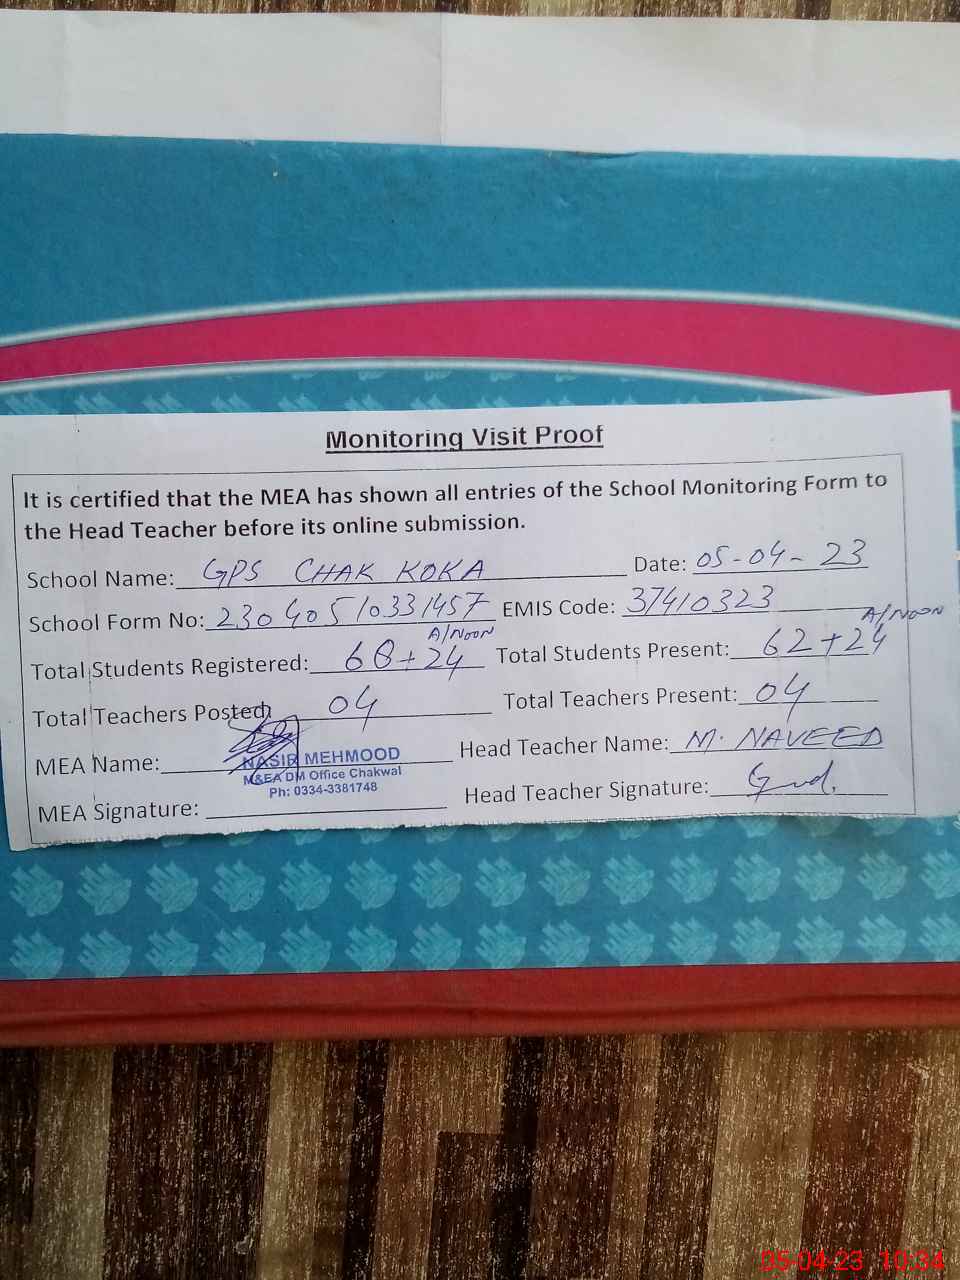 Monitoring Visit Proof
It is certified that the MEA has shown all entries of the School Monitoring Form to
the Head Teacher before its online submission.
School Name: GPS CHAK KOKA Date: 05-04-23
School Form No: 23040510331457 EMIS Code: 37410323
A/NOON A/NOON
Total Students Registered: 68+24 Total Students Present: 62+24
Total Teachers Posted: 04 Total Teachers Present: 04
MEA Name: NASIR MEHMOOD Head Teacher Name: M. NAVEED
M&EA DM Office Chakwal
Ph: 0334-3381748
MEA Signature: Head Teacher Signature:
05-04-23 10:34